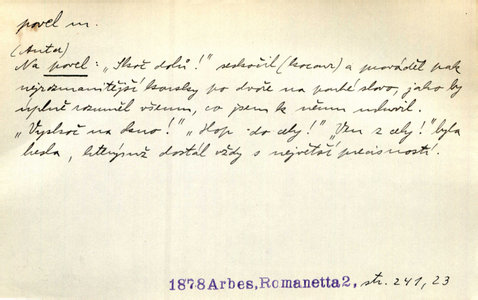 povel m.
(Auta)
Na povel: „Skoč dolů!" seskočil (kocour) a prováděl pak
nejrozmanitější kousky po dvoře na pouhé slovo, jako by
úplně rozuměl všemu, co jsem k němu mluvil.
„Vyskoč na okno!" „Hop - do cely!" „Ven z cely!" byla
hesla, kterýmž dostál vždy s největší precisností.
1878 Arbes, Romanetta 2, str. 241, 23